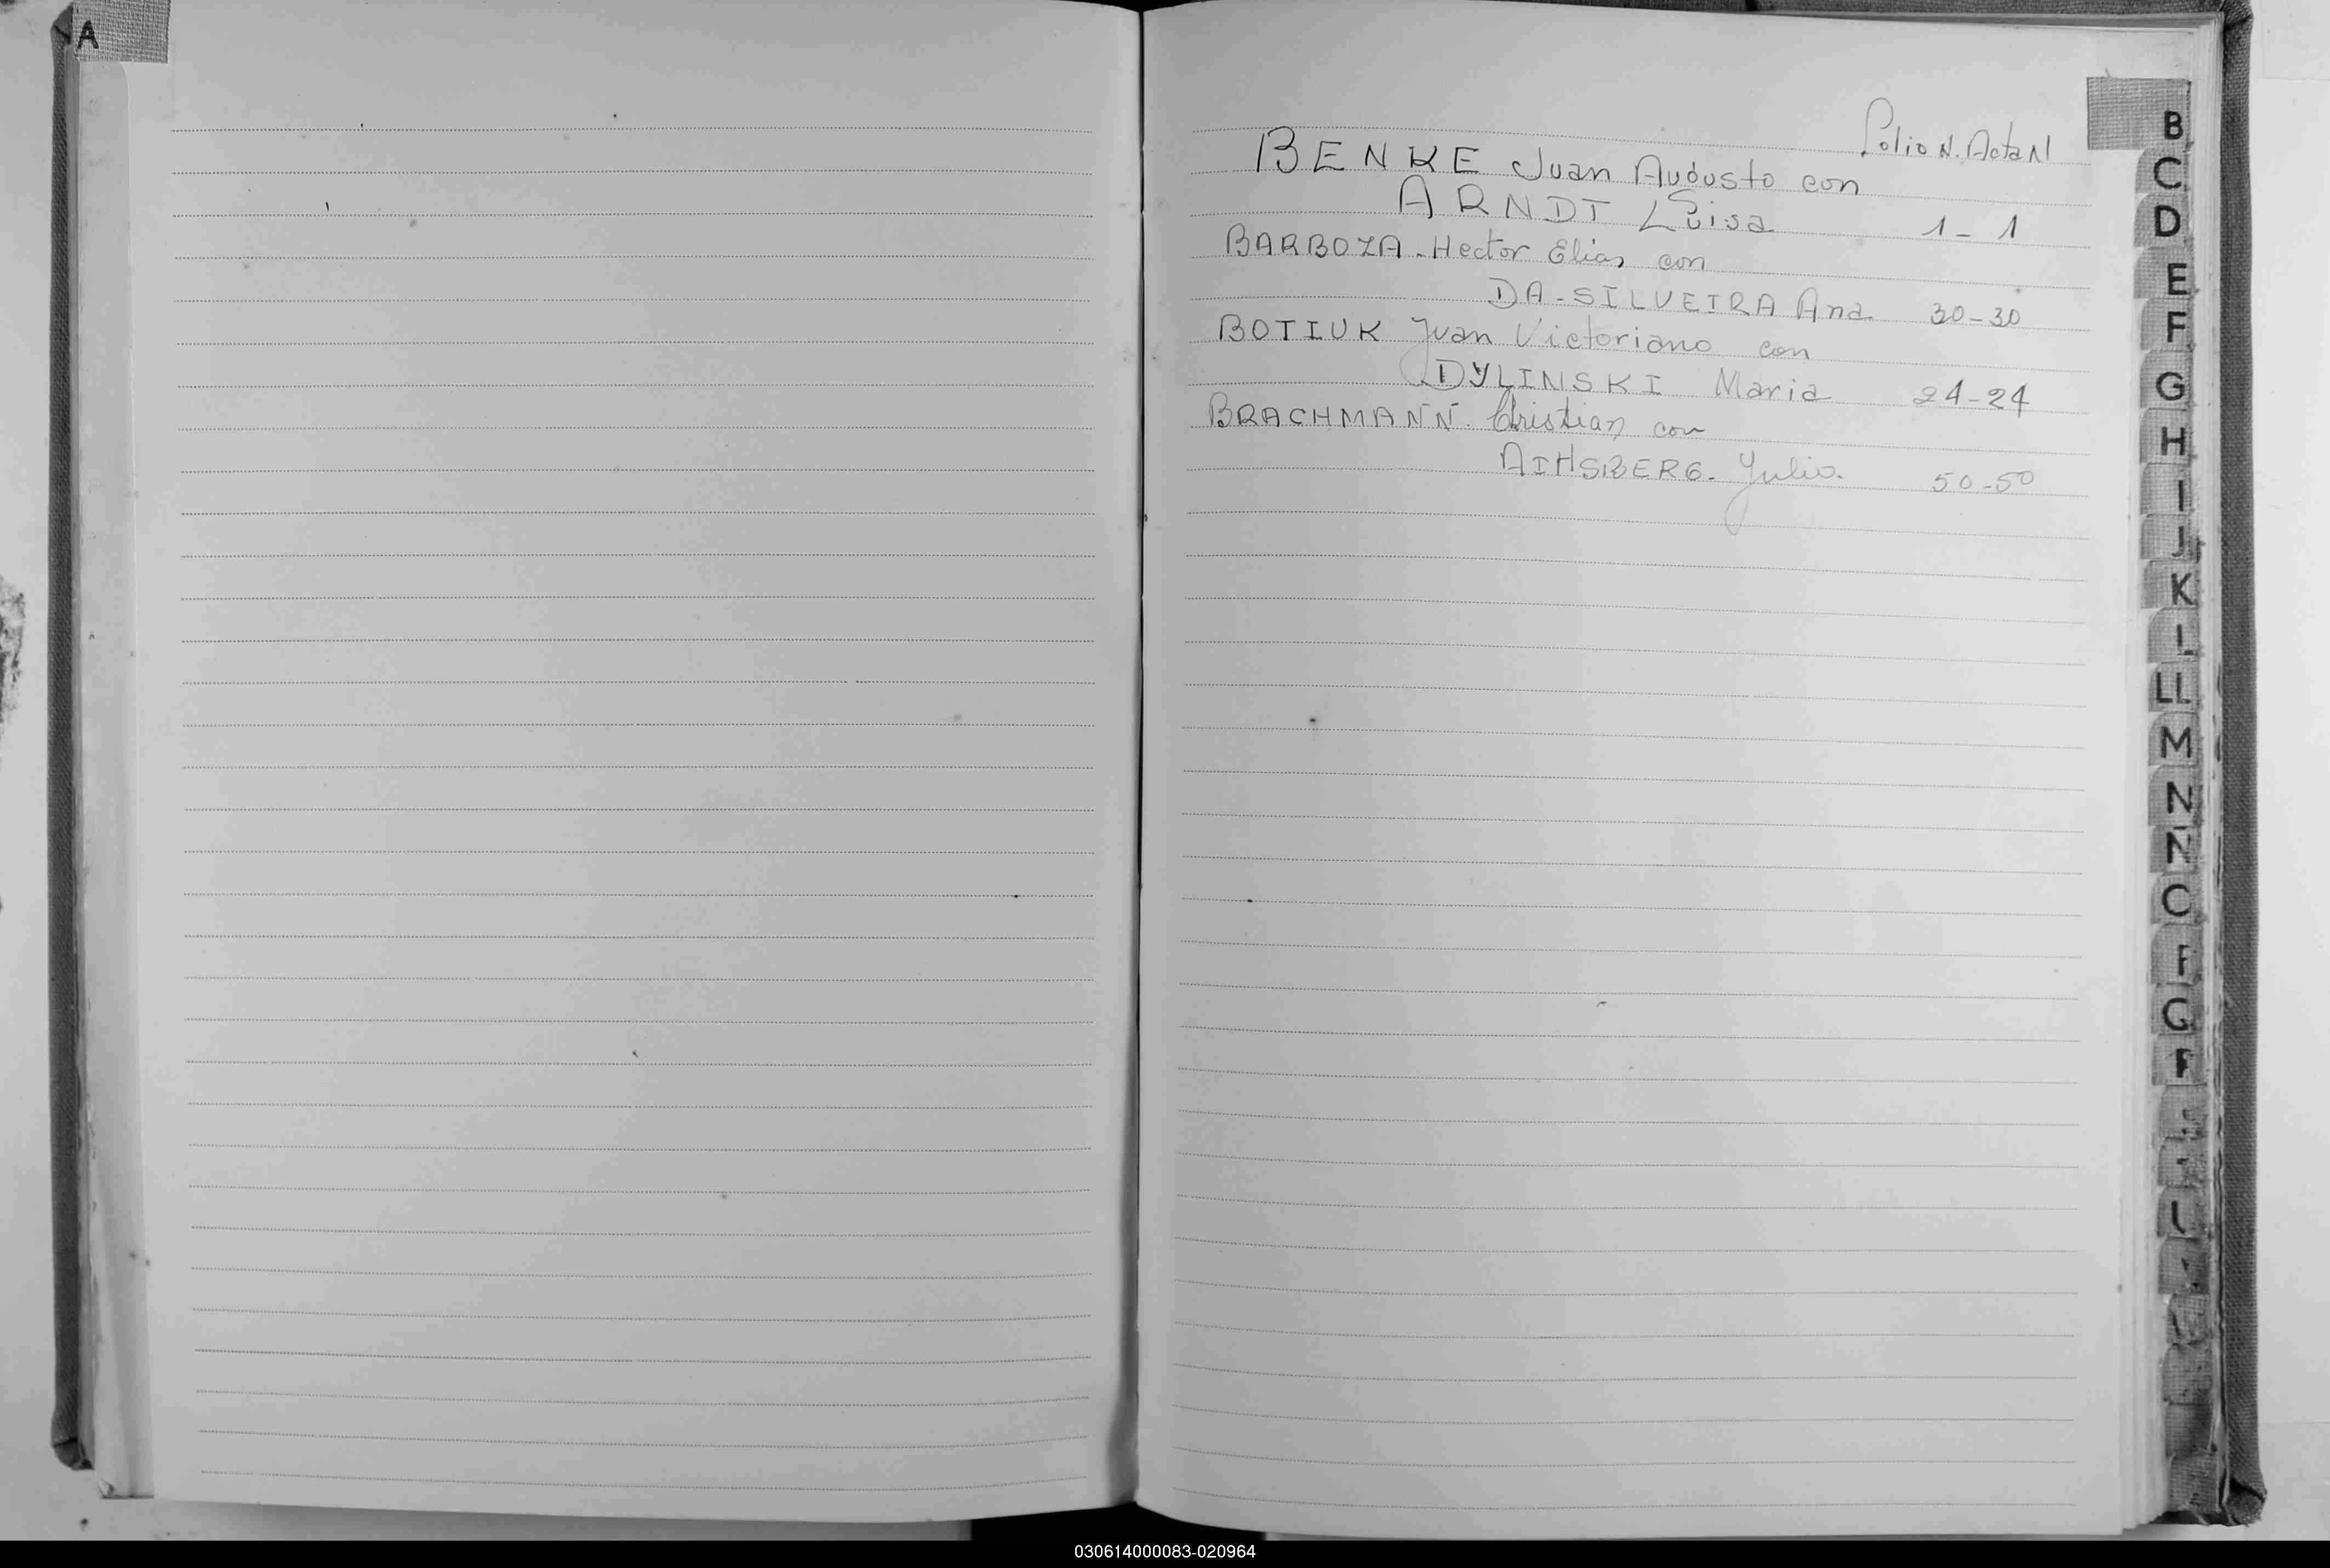 A
Folio N. Acta N
BENKE Juan Augusto con
ARNDT Luisa 1 - 1
BARBOZA - Hector Elias con
DA-SILVEIRA Ana 30-30
BOTIUK Juan Victoriano con
DYLINSKI Maria 24-24
BRACHMANN. Christian con
AIHSBERG. Julia. 50-50
B
C
D
E
F
G
H
I
J
K
L
LL
M
N
Ñ
O
030614000083-020964